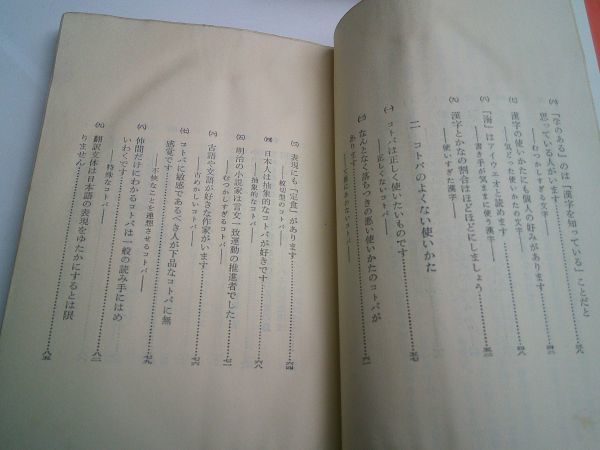 ㈥ 「学のある」のは「漢字を知っている」ことだと
思っている人がいます
――むつかしすぎる文字――
㈦ 漢字の使いかたにも個人の好みがあります
――気どった使いかたの文字――
㈧ 「海」はアイウエオと読めます
――書き手が気ままに使う漢字――
㈨ 漢字とかなの割合はほどほどにしましょう
――使いすぎた漢字――
二 コトバのよくない使いかた
㈠ コトバは正しく使いたいものです
――正しくないコトバ――
㈡ なんとなく落ちつきの悪い使いかたのコトバが
あります
――文脈にあわないコトバ――
㈢ 表現にも「定食」があります 六四
――紋切型のコトバ――
㈣ 日本人は抽象的なコトバが好きです 六八
――抽象的なコトバ――
㈤ 明治の小説家は言文一致運動の推進者でした 七二
――むつかしすぎるコトバ――
㈥ 古語や文語が好きな作家がいます 七六
――古めかしいコトバ――
㈦ コトバに敏感であるべき人が下品なコトバに無
感覚です
――不快なことを連想させるコトバ――
㈧ 仲間だけにわかるコトバは一般の読み手にはめ
いわくです 八二
――特殊なコトバ――
㈨ 翻訳文体は日本語の表現をゆたかにするとは限
りません 八五